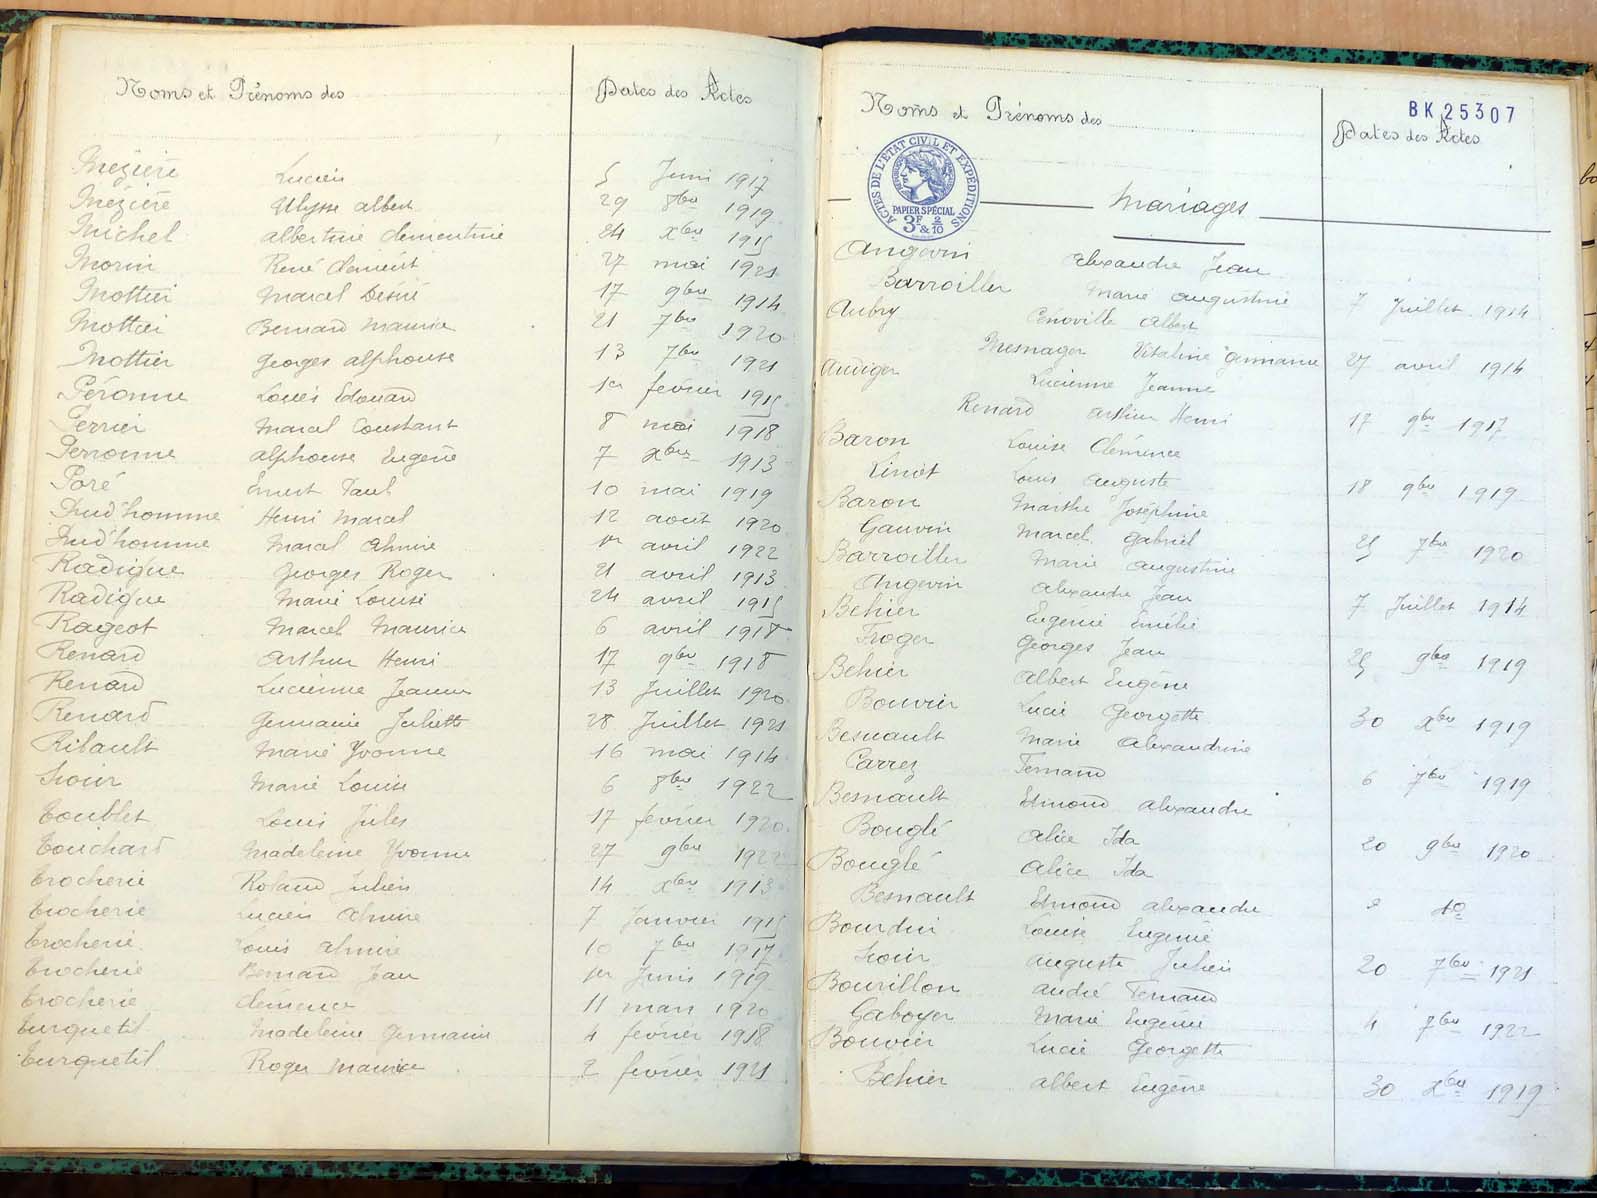 Noms et Prénoms des Dates des Actes
Mézière Lucien 5 Juin 1917
Mézière Ulysse Albert 29 8bre 1919
Michel Albertine Clementine 24 Xbre 1915
Morin René Clément 27 mai 1921
Mottier Marcel Désiré 17 9bre 1914
Mottier Bernard Maurice 21 7bre 1920
Mottier Georges Alphonse 13 7bre 1921
Péronne Louis Edouard 1er février 1915
Perrier Marcel Constant 8 mai 1918
Peronne Alphonse Eugène 7 Xbre 1913
Poré Ernest Paul 10 mai 1919
Prud'homme Henri Marcel 12 août 1920
Prud'homme Marcel Almire 1er avril 1922
Radigue Georges Roger 21 avril 1913
Radigue Marie Louise 24 avril 1915
Rageot Marcel Maurice 6 avril 1918
Renard Arthur Henri 17 9bre 1918
Renard Lucienne Jeanne 13 Juillet 1920
Renard Germaine Juliette 28 Juillet 1921
Ribault Marie Yvonne 16 mai 1914
Soin Marie Louise 6 8bre 1922
Toublet Louis Jules 17 février 1920
Touchard Madeleine Yvonne 27 9bre 1922
Trocherie Roland Julien 14 Xbre 1913
Trocherie Lucien Almire 7 Janvier 1915
Trocherie Louis Almire 10 7bre 1917
Trocherie Bernard Jean 1er Juin 1919
Trocherie Clémence 11 mars 1920
Turquetil Madeleine Germaine 4 février 1918
Turquetil Roger Maurice 2 février 1921
BK 25307
Noms et Prénoms des Dates des Actes
ACTES DE L'ETAT CIVIL ET EXPÉDITIONS
PAPIER SPÉCIAL
3F & 2/10
Mariages
Angevin Alexandre Jean
Barroiller Marie Augustine 7 Juillet 1914
Aubry Cénoville Albert
Mesnager Vitaline Germaine 27 avril 1914
Audiger Lucienne Jeanne
Renard Arthur Henri 17 9bre 1917
Baron Louise Clémence
Linot Louis Auguste 18 9bre 1919
Baron Marthe Joséphine
Gauvin Marcel Gabriel 25 7bre 1920
Barroiller Marie Augustine
Angevin Alexandre Jean 7 Juillet 1914
Behier Eugénie Emélie
Froger Georges Jean 25 9bre 1919
Behier Albert Eugène
Bouvier Lucie Georgette 30 Xbre 1919
Besnault Marie Alexandrine
Carrez Fernand 6 7bre 1919
Besnault Edmond Alexandre
Bouglé Alice Ida 20 9bre 1920
Bouglé Alice Ida
Besnault Edmond Alexandre do
Bourdin Louise Eugénie
Soin Auguste Julien 20 7bre 1921
Bourillon André Fernand
Gaboyer Marie Eugénie 4 7bre 1922
Bouvier Lucie Georgette
Behier Albert Eugène 30 Xbre 1919